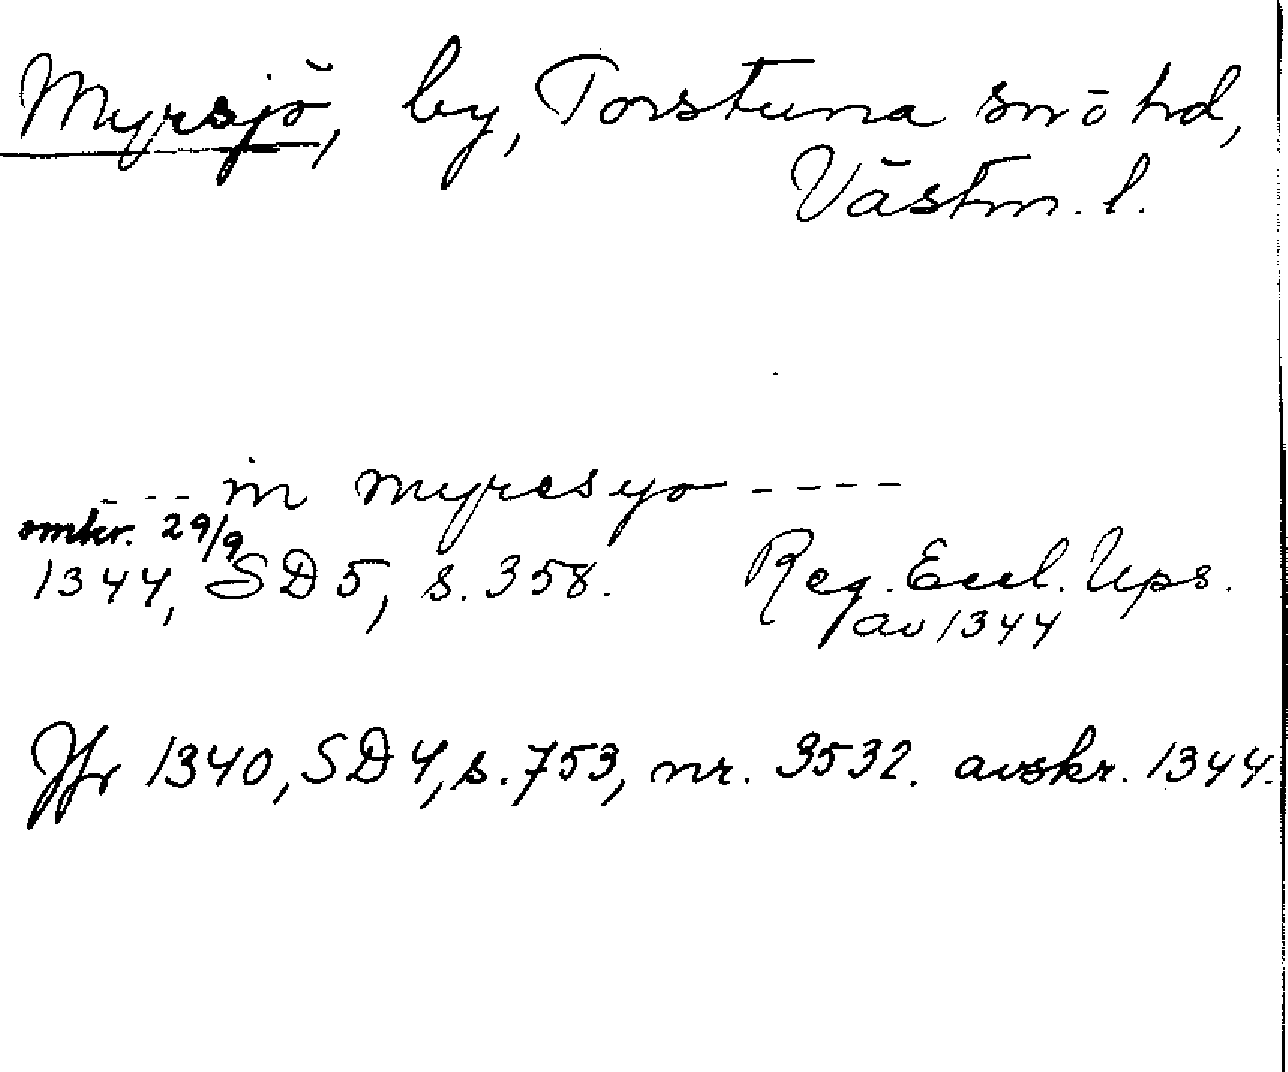 Myrsjö, by, Torstuna sn o hd,
Västm. l.
---- in myresyo ----
omkr. 29/9
1344, SD 5, s. 358. Reg. Eccl. Ups.
av 1344
Jfr 1340, SD 4, s. 753, nr. 3532. avskr. 1344.